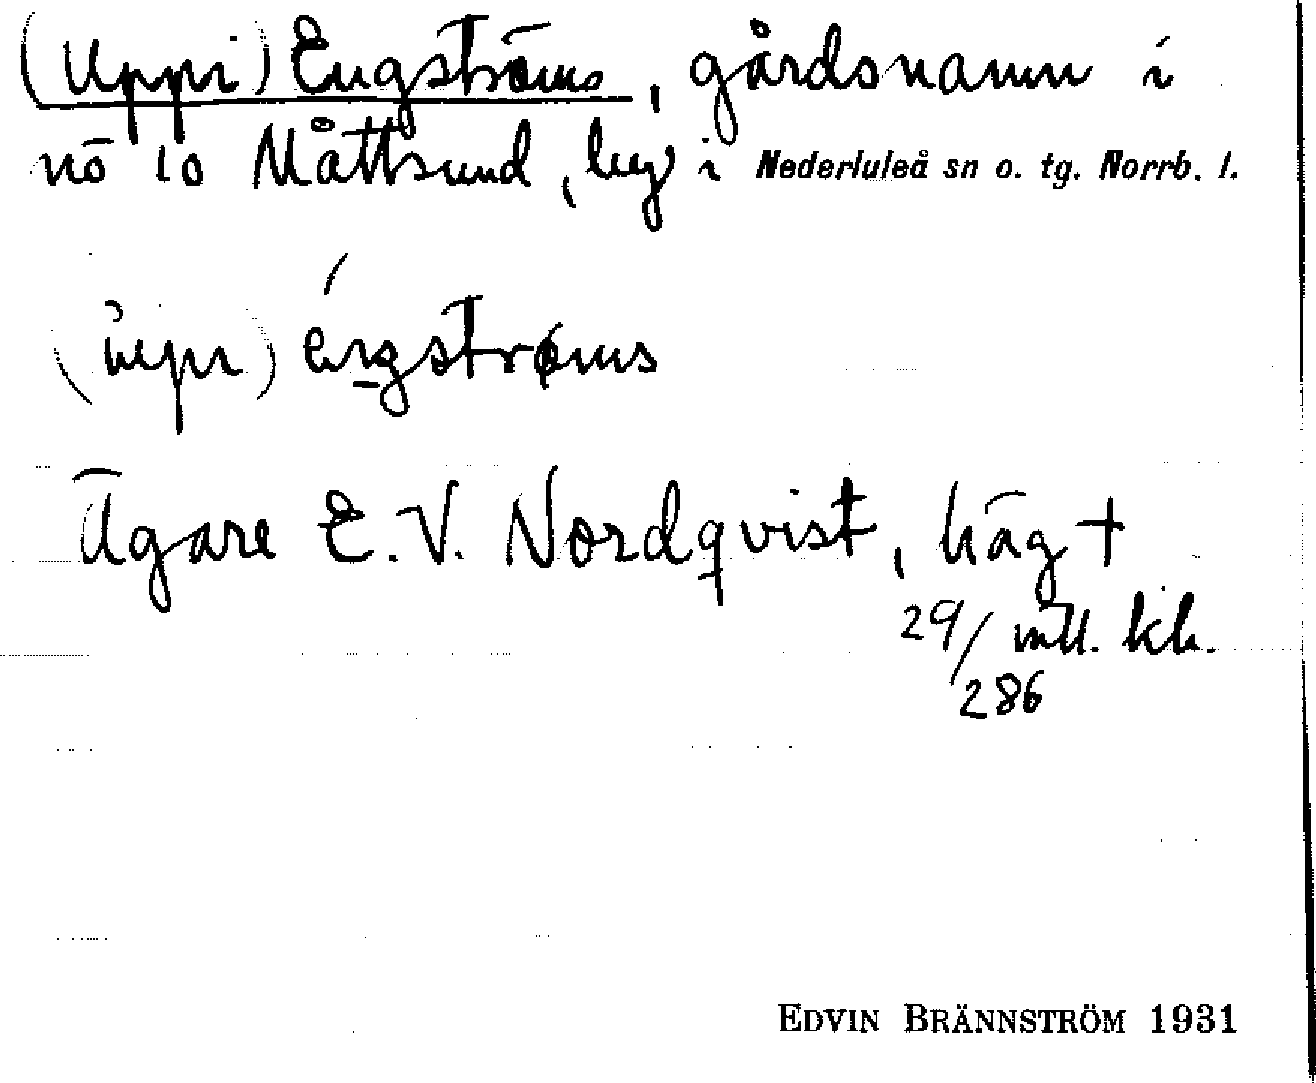 (Uppi) Engströms, gårdsnamn i
nö 10 Måttsund, by i Nederluleå sn o. tg. Norrb. l.
engstrøms
Ägare E. V. Nordqvist, häg +
29/286 mtl. kb.
EDVIN BRÄNNSTRÖM 1931